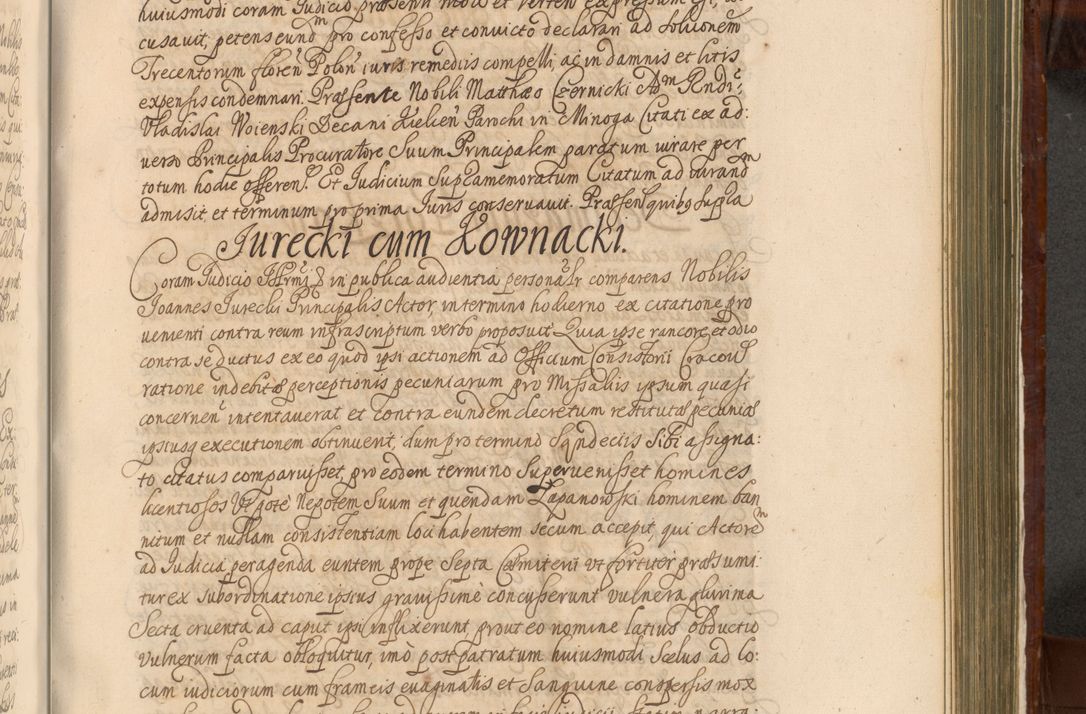 huiusmodi coram Judicio præsenti mota et vertens expressum est,
cusavit, petens eundm pro confesso et convicto declarari ad solucionem
Trecentorum floren Polon iuris remediis compelli, ac in damnis et litis
expensis condemnari. Præsente Nobili Matthæo Czernicki Adm Rndi
Vladislai Woienski Decani Kielien Parochi in Minoga Citati ex ad:
verso Principalis Procuratore Suum Principalem paratum iurare per
totum hodie offeren. Et Judicium Supramemoratum Citatum ad iurandm
admisit, et terminum pro prima Iuris conservavit. Præsen quibg supra
Jurecki cum Łownacki.
Coram Judicio in publica audientia personalr comparens Nobilis
Joannes Jurecki Principalis Actor, in termino hodierno ex citatione pro
venienti contra reum infrascriptum verbo proposuit Quia ipse rancore et odio
contra se ductus ex eo quod ipsi actionem ad Officium Consistorii Cracov
ratione indebitæ perceptionis pecuniarum pro Missaliis ipsum quasi
concernen intentaverat et contra eundem decretum restitutæ pecuniæ
ipsiusq executionem obtinuerit, dum pro termino Syndeciis sibi assigna:
to citatus comparuisset, pro eodem termino Supervenisset homines
licentiosos Ut pote Nepotem Suum et quendam Łapanowski hominem ban
nitum et nullam consistentiam loci habentem secum accepit, qui Actorem
ad Judicia peragenda euntem prope Septa Cæmiterii ut fortiter præsumi:
tur ex subordinatione ipsius gravissimè concusserunt vulnera plurima
Secta cruenta ad caput ipsi inflixerunt prout eo nomine latius obductio
vulnerum facta obloquitur, imò post patratum huiusmodi Scelus ad lo:
cum iudiciorum cum frameis evaginatis et Sanguine conspersis mox